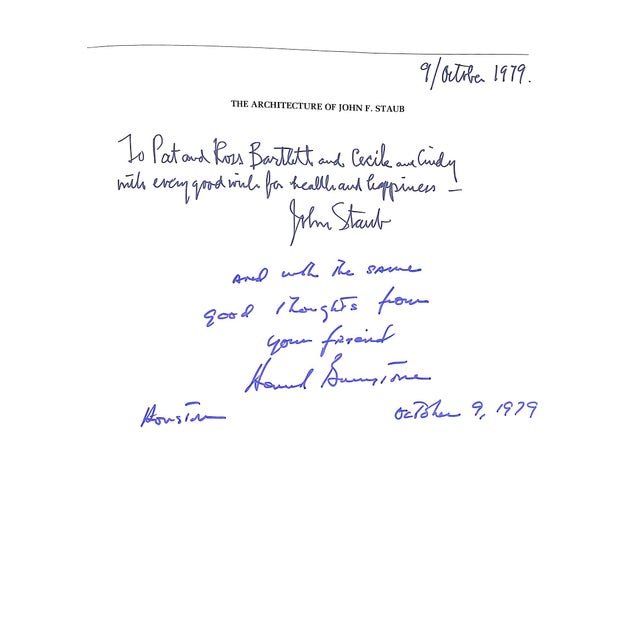 9/October 1979.
THE ARCHITECTURE OF JOHN F. STAUB
To Pat and Ross Bartlett and Cecile and Cindy
with every good wish for health and happiness —
John Staub
and with the same
good thoughts from
your friend
Howard Barnstone
Houston
October 9, 1979